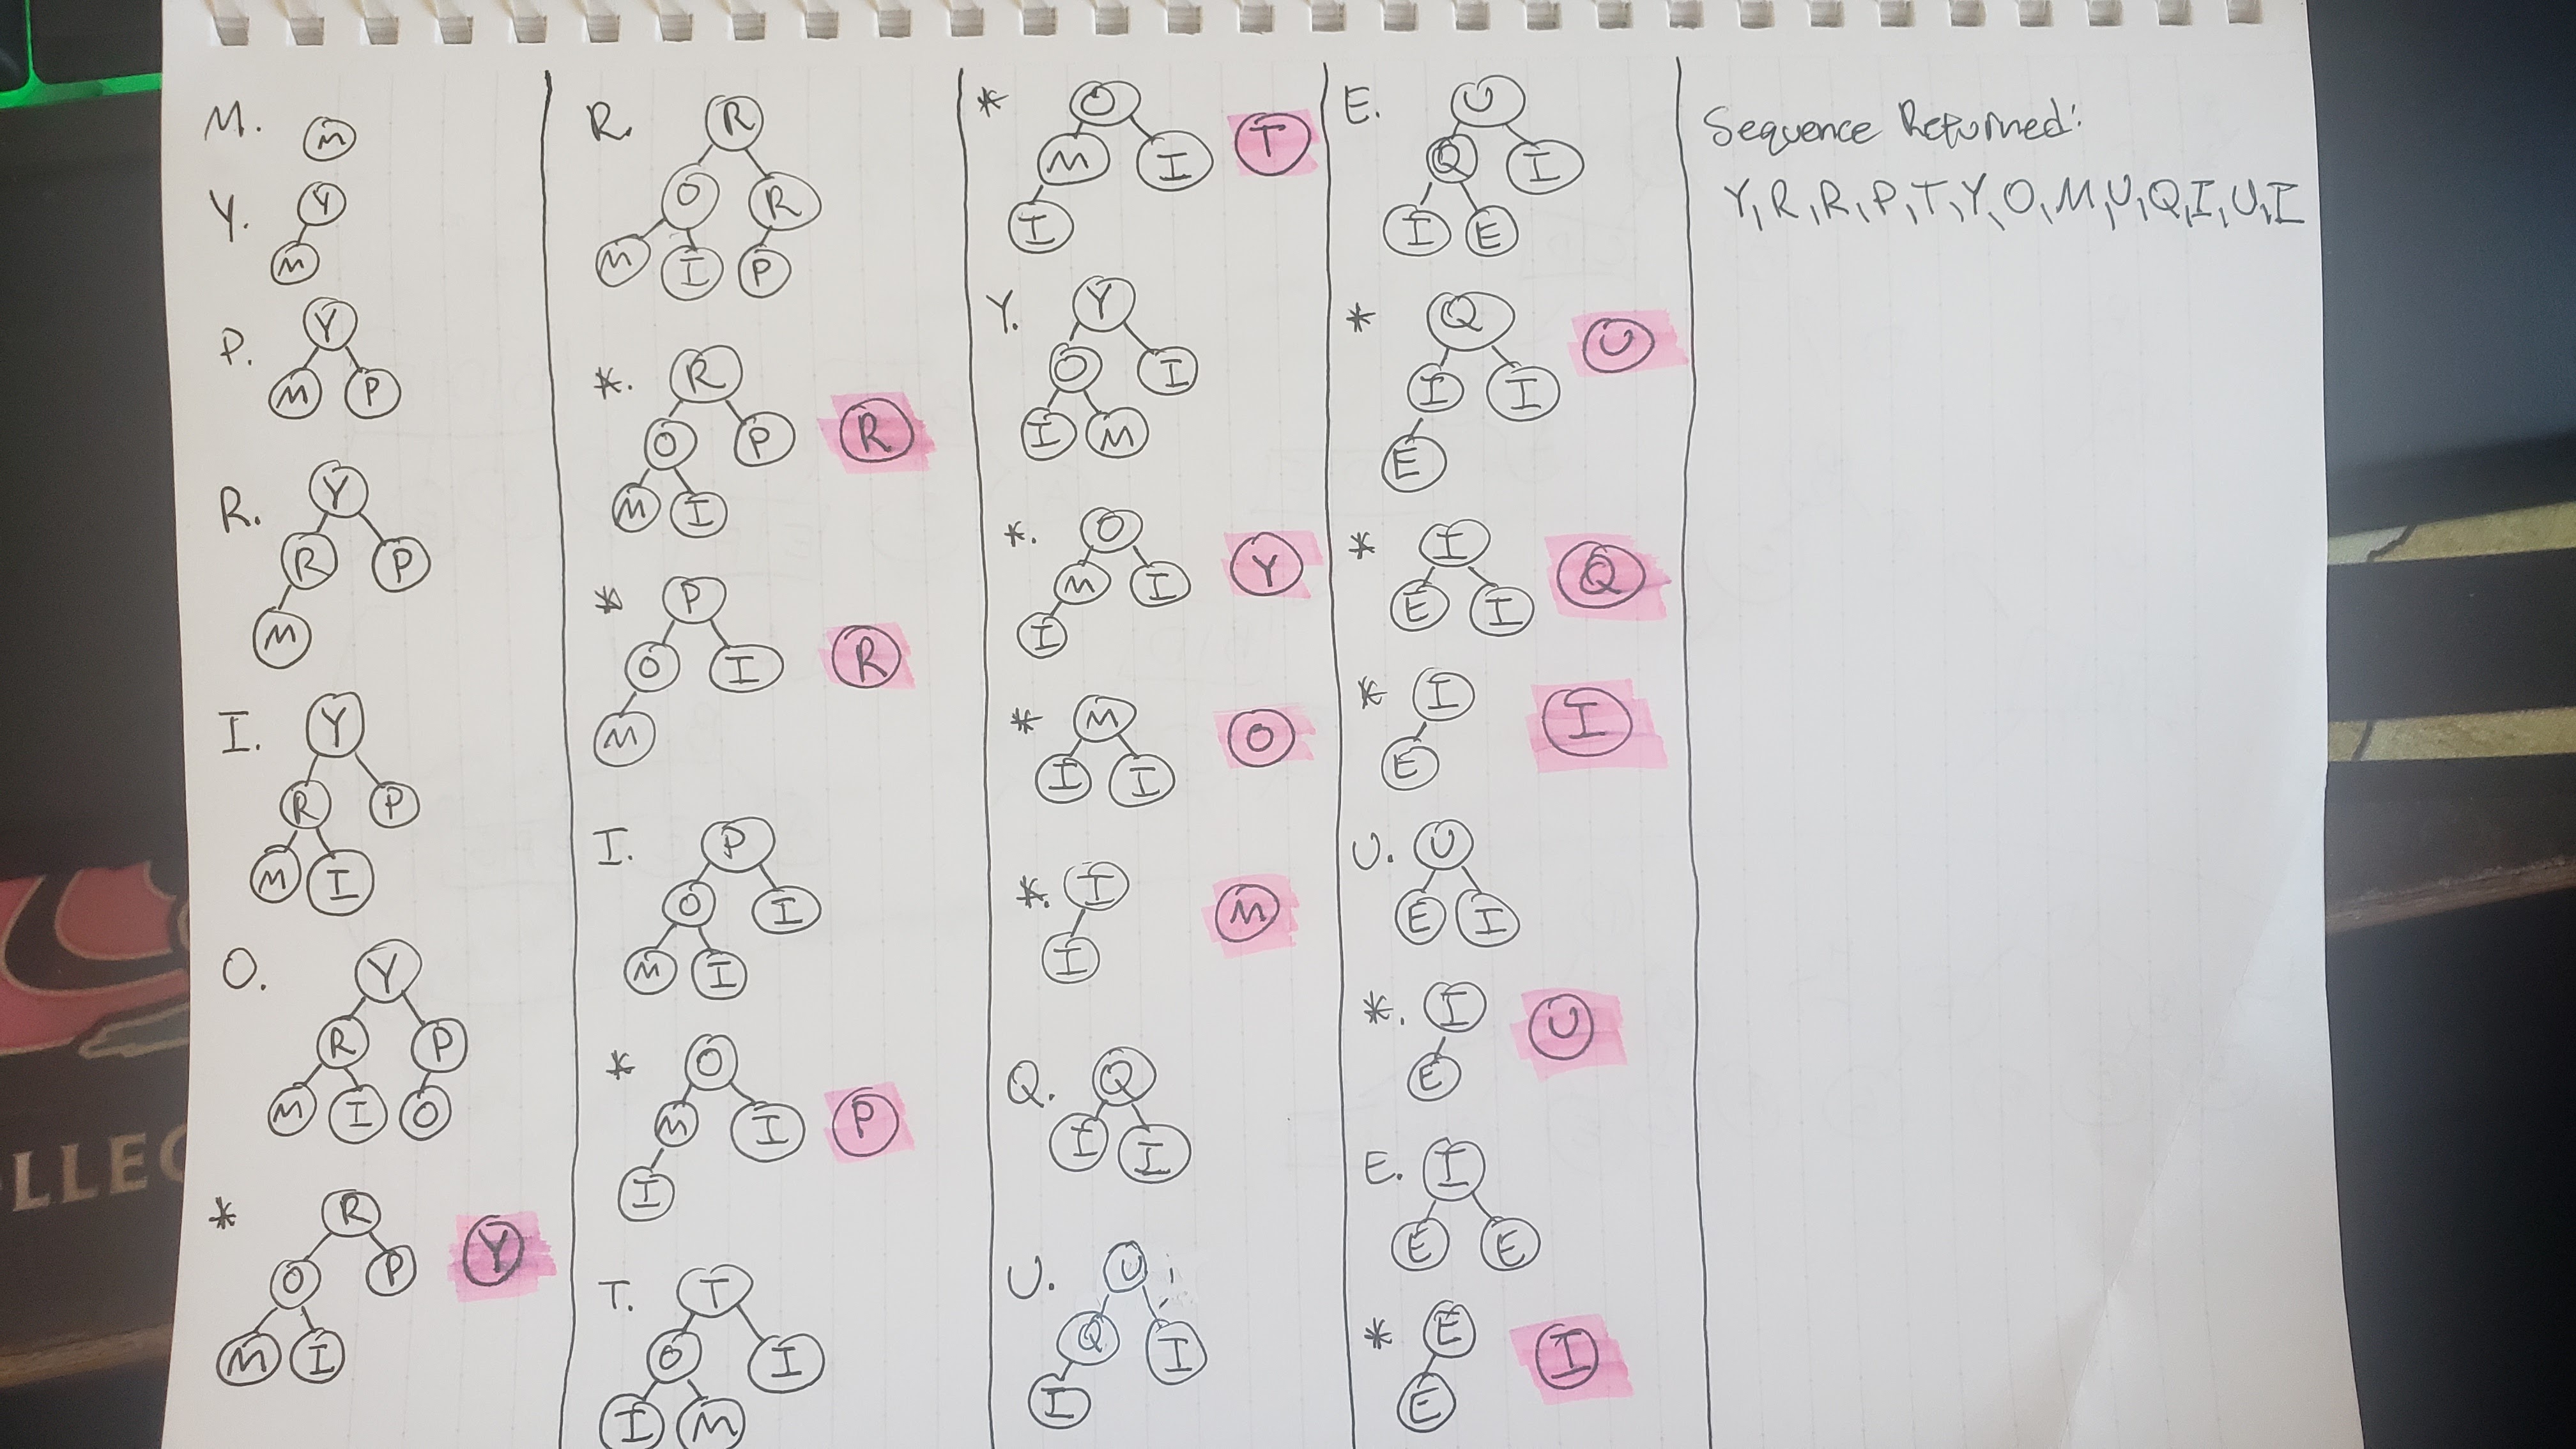 M.
M
Y.
Y
M
P.
Y
M P
R.
Y
R P
M
I.
Y
R P
M I
O.
Y
R P
M I O
*
R
O P Y
M I
R.
R
O R
M I P
*.
R
O P R
M I
*
P
O I R
M
I.
P
O I
M I
*
O
M I P
I
T.
T
O I
I M
*
O
M I T
I
Y.
Y
O I
I M
*.
O
M I Y
I
*
M O
I I
*.
I M
I
Q.
Q
I I
U.
U
Q I
I
E.
U
Q I
I E
*
Q U
I I
E
*
I Q
E I
*
I I
E
U.
U
E I
*.
I U
E
E.
I
E E
*
E I
E
Sequence Returned:
Y, R, R, P, T, Y, O, M, U, Q, I, U, I
LLEC